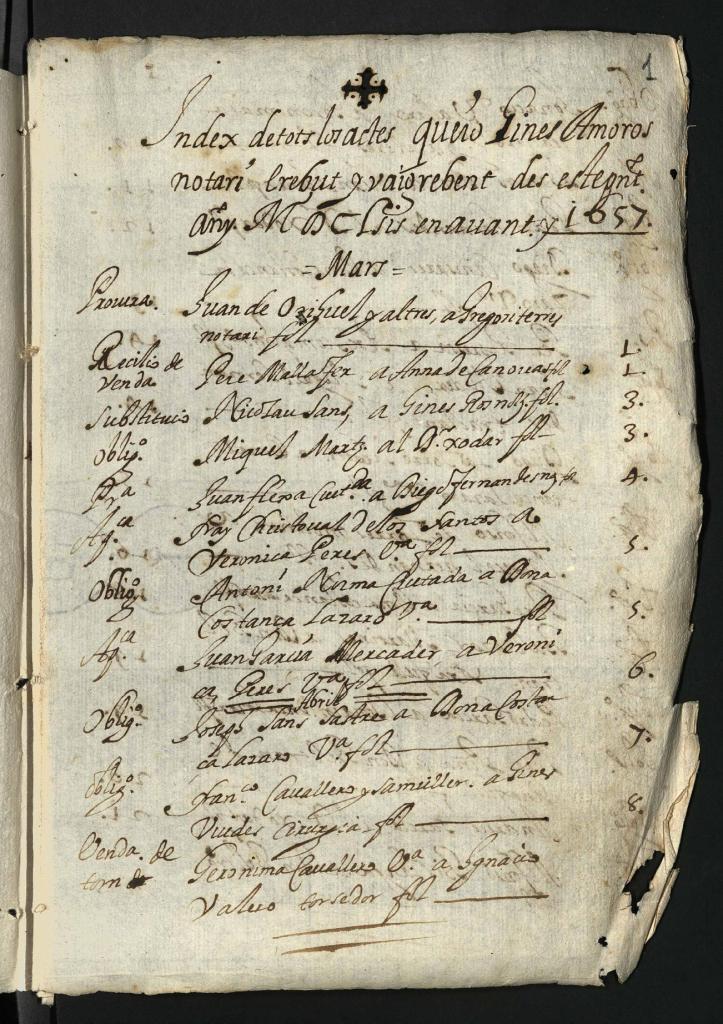 1
Index de tots los actes que io Gines Amoros
notari he rebut y vaig rebent des este pnt.
any. MDCLsis en auant. y 1657.
= Mars =
Procura. Juan de Orihuel y altres, a Gregori terres
notari fol. 1.
Recilio de venda Pere Mallasfer a Anna de Canouas fol 1.
Substitucio Nicolau Sans, a Gines fol. 3.
Oblig.o Miquel Martz. al Dr. rodar fol 3.
Pra Juan a Diego fernandes fol 4.
Ap.ca fray Christoual de los Santos a
Veronica Peres V.a fol 5.
Oblig.o Antoni Ciutada a Dona
Costanza Lazaro V.a fol 5.
Ap.ca Juan Garcia Mercader a Veroni
ca Peres V.a fol 6.
Abril
Oblig.o Joseph Sans Sastre a Dona Costan
ca Lazaro V.a fol 7.
Oblig.o Fran.co Cauallero y sa muller. a Gines
Vuides cirurgia fol 8.
Venda. de torn Geronima Cauallero V.a a Ignacio
Valero torsedor fol